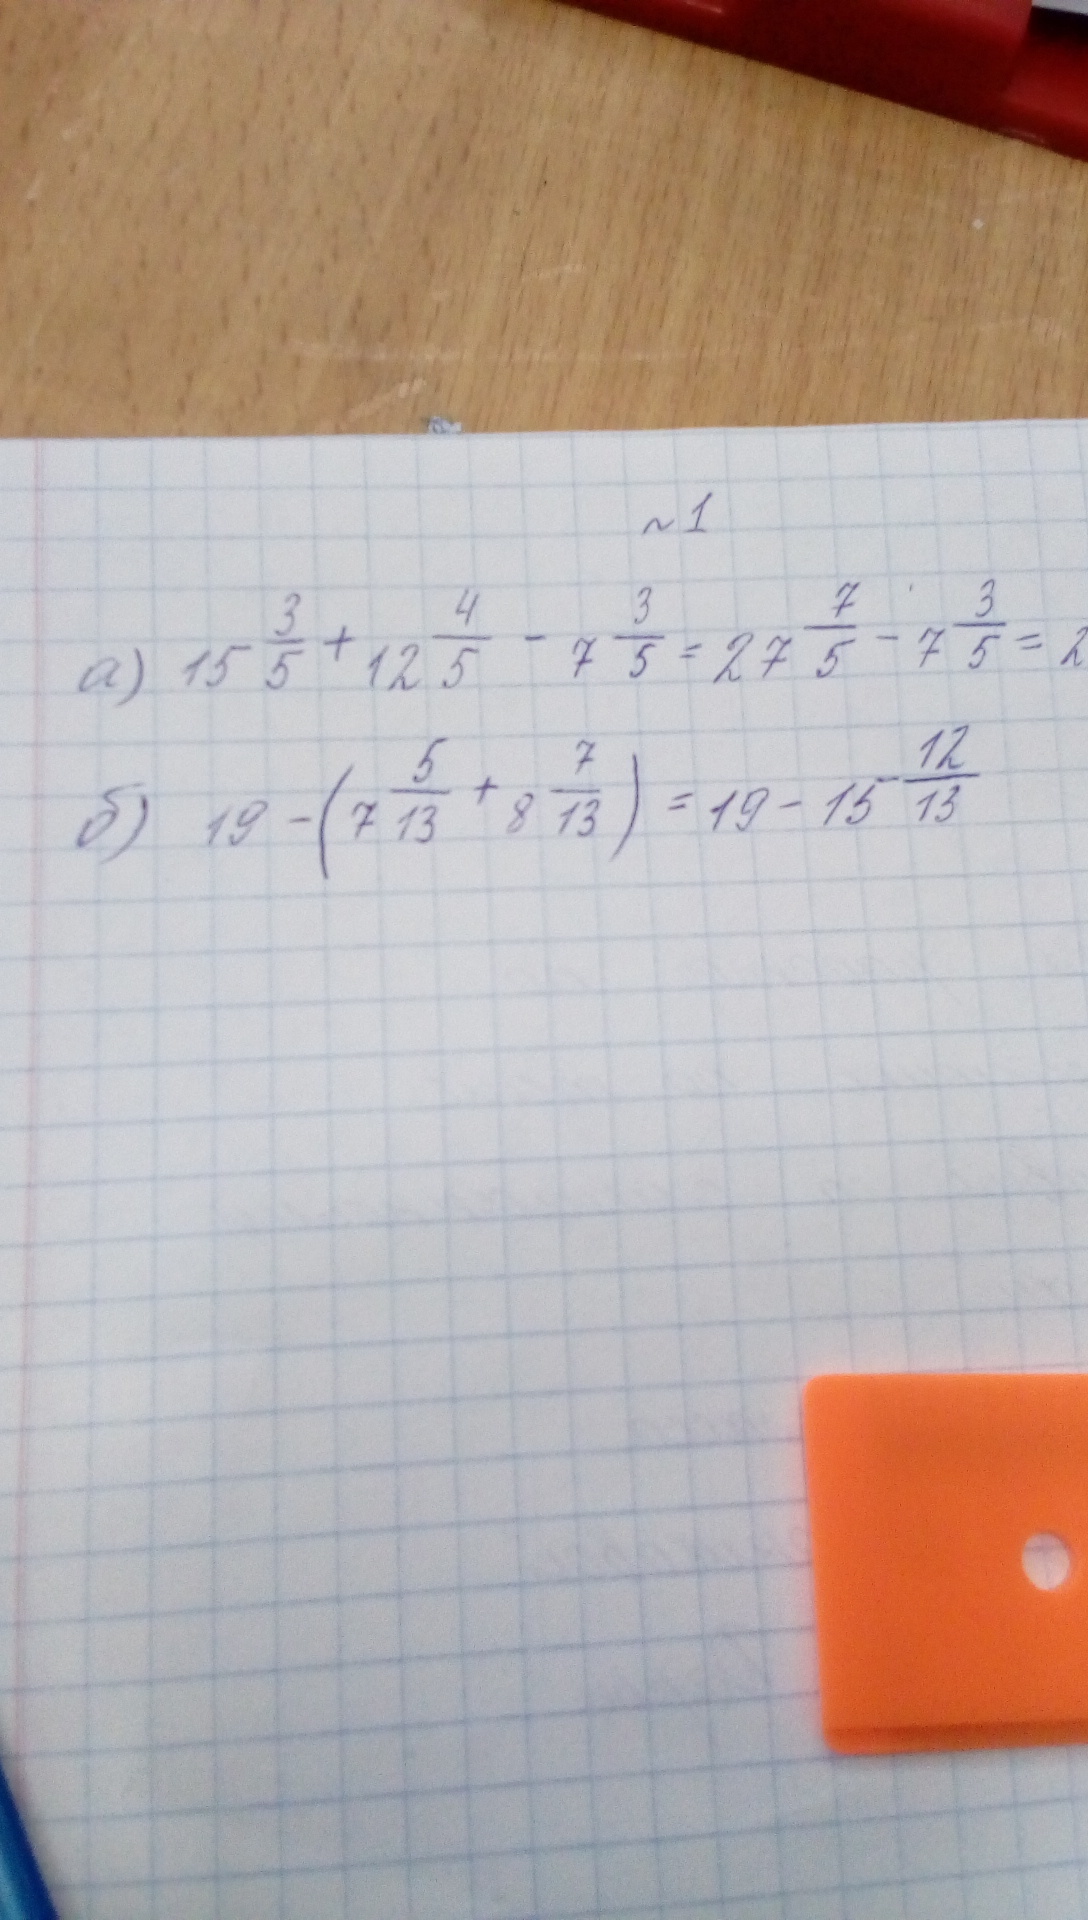 ~1
а) 15 3/5 + 12 4/5 - 7 3/5 = 27 7/5 - 7 3/5 = 2
б) 19 - (7 5/13 + 8 7/13) = 19 - 15 12/13